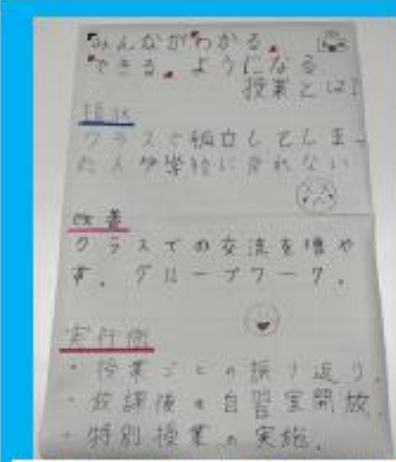 「みんなが「わかる」
「できる」ようになる
授業とは?
現状
クラスで孤立してしまっ
た人が学校に来れない
改善
クラスでの交流を増や
す。グループワーク。
実行例
・授業ごとの振り返り。
・放課後の自習室開放。
・特別授業の実施。